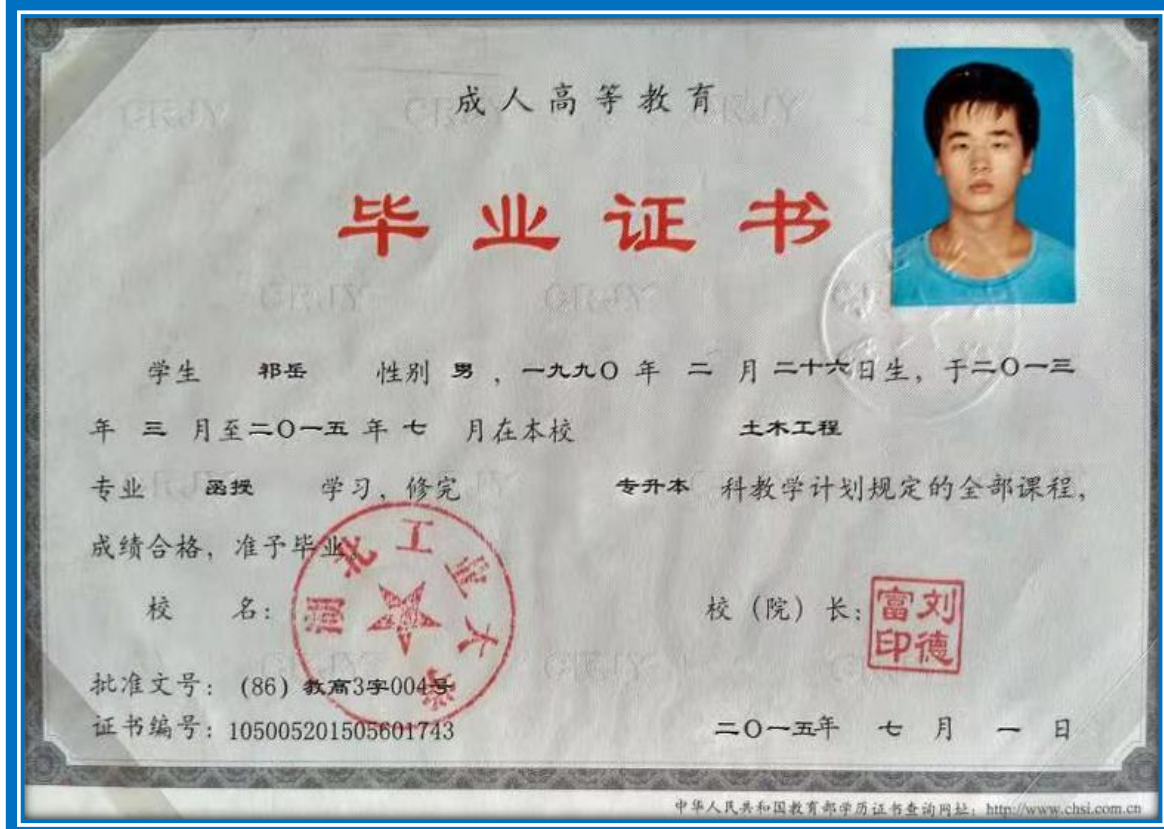 成人高等教育
毕业证书
学生 祁岳 性别 男 ，一九九〇 年 二 月 二十六日生，于二〇一三
年 三 月至二〇一五 年 七 月在本校 土木工程
专业 函授 学习，修完 专升本 科教学计划规定的全部课程，
成绩合格，准予毕业。
校 名：
湖北工业大学
校（院）长：
刘德富印
批准文号：(86) 教高3字004号
证书编号：105005201505601743
二〇一五年 七 月 一 日
中华人民共和国教育部学历证书查询网址：http://www.chsi.com.cn